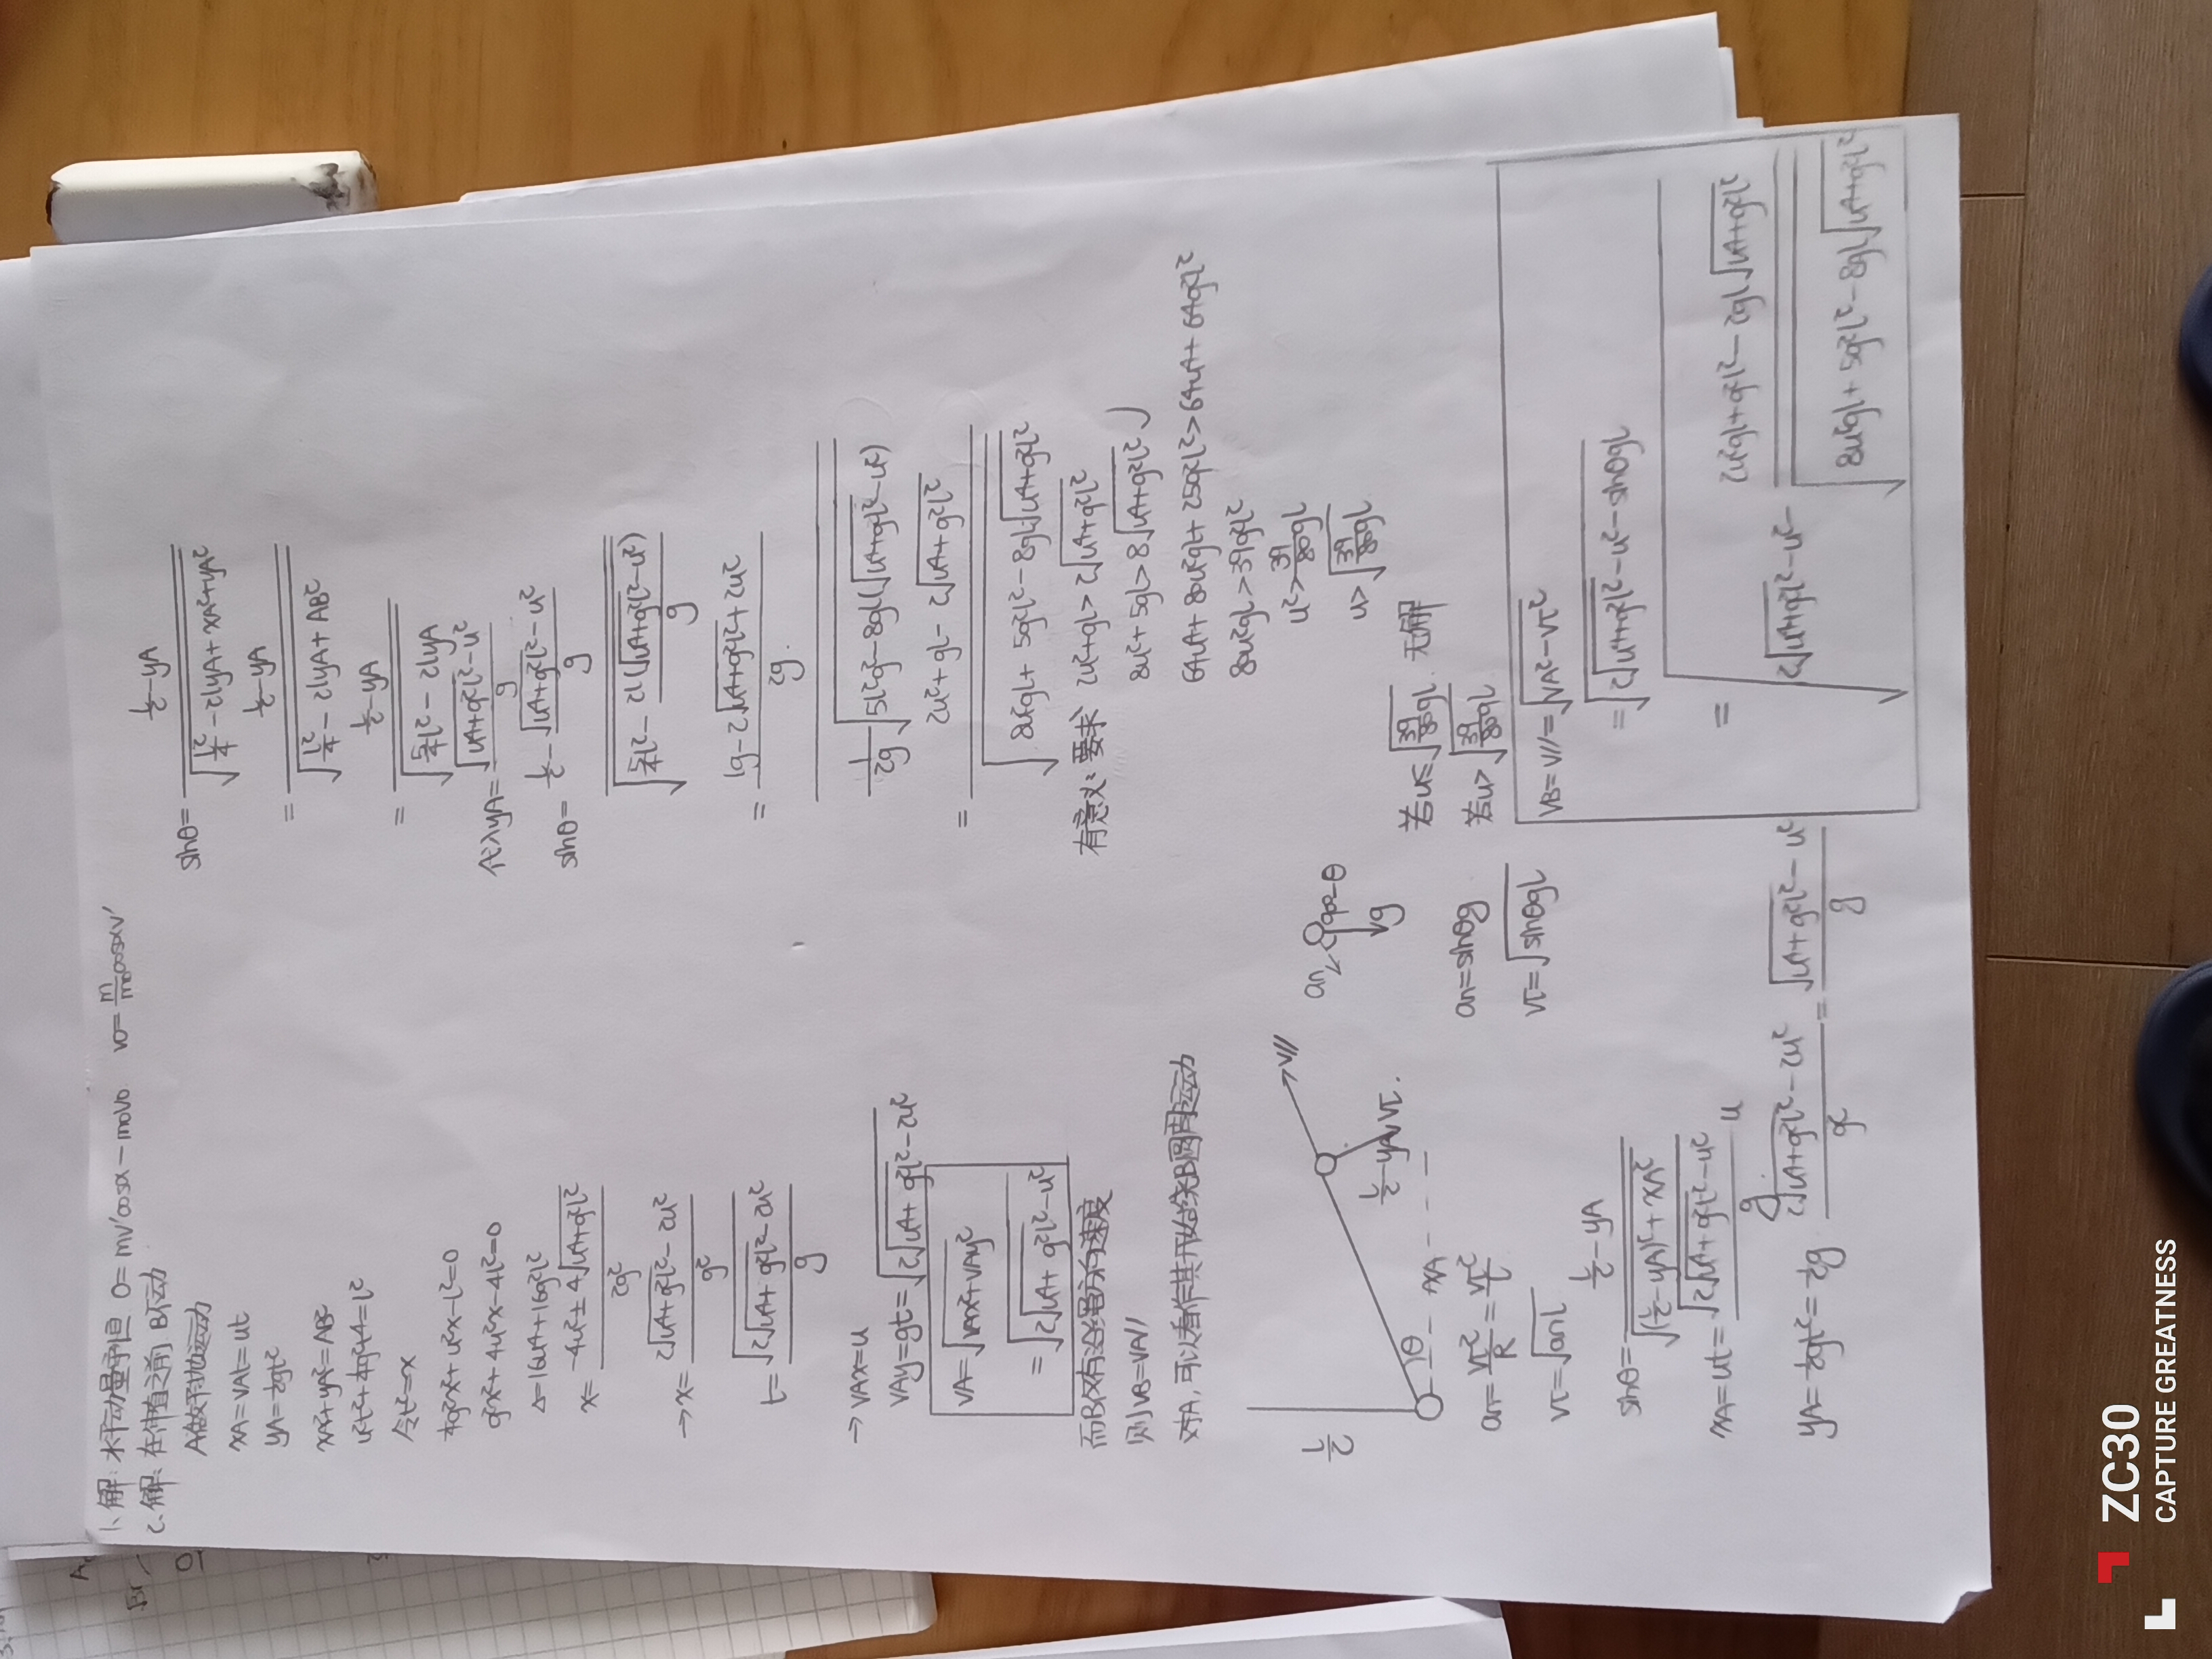 1、解: 水平动量守恒 0=mv'cosα-m0v0 v0=m/m0 cosαv'
2、解: 在伸直之前B不动
A做平抛运动
xA=vAt=ut
yA=½gt²
xA²+yA²=AB²
u²t²+¼g²t⁴=l²
令t²=x
¼g²x²+u²x-l²=0
g²x²+4u²x-4l²=0
Δ=16u⁴+16g²l²
x=(-4u²±4√(u⁴+g²l²))/2g²
→x=(2√(u⁴+g²l²)-2u²)/g²
t=√(2√(u⁴+g²l²)-2u²)/g
→vAx=u
vAy=gt=√(2√(u⁴+g²l²)-2u²)
vA=√(vAx²+vAy²)
=√(2√(u⁴+g²l²)-u²)
而B仅有沿绳方向速度
则vB=vA//
对A,可以看作其开始绕B圆周运动
l/2
θ
xA
l/2-yA
vτ
v//
an=vτ²/R=vτ²/l
vτ=√(anl)
sinθ=(l/2-yA)/√((l/2-yA)²+xA²)
xA=ut=√(2√(u⁴+g²l²)-u²)/g u
yA=½gt²=½g (2√(u⁴+g²l²)-2u²)/g²=(√(u⁴+g²l²)-u²)/g
an
90-θ
g
an=sinθg
vτ=√(sinθgl)
sinθ=(l/2-yA)/√(l²/4-2lyA+xA²+yA²)
=(l/2-yA)/√(l²/4-2lyA+AB²)
=(l/2-yA)/√(5/4l²-2lyA)
代入yA=(√(u⁴+g²l²)-u²)/g
sinθ=(l/2-(√(u⁴+g²l²)-u²)/g)/√(5/4l²-2l(√(u⁴+g²l²)-u²)/g)
=((lg-2√(u⁴+g²l²)+2u²)/2g)/(1/2g √(5l²g²-8gl(√(u⁴+g²l²)-u²)))
=(2u²+gl-2√(u⁴+g²l²))/√(8u²gl+5g²l²-8gl√(u⁴+g²l²))
有意义: 要求 2u²+gl>2√(u⁴+g²l²)
8u²+5gl>8√(u⁴+g²l²)
64u⁴+80u²gl+25g²l²>64u⁴+64g²l²
80u²gl>39g²l²
u²>39/80gl
u>√(39/80gl)
若u≤√(39/80gl) 无解
若u>√(39/80gl)
vB=v//=√(vA²-vτ²)
=√(2√(u⁴+g²l²)-u²-sinθgl)
=√(2√(u⁴+g²l²)-u²-(2u²gl+g²l²-2gl√(u⁴+g²l²))/√(8u²gl+5g²l²-8gl√(u⁴+g²l²)))
ZC30
CAPTURE GREATNESS